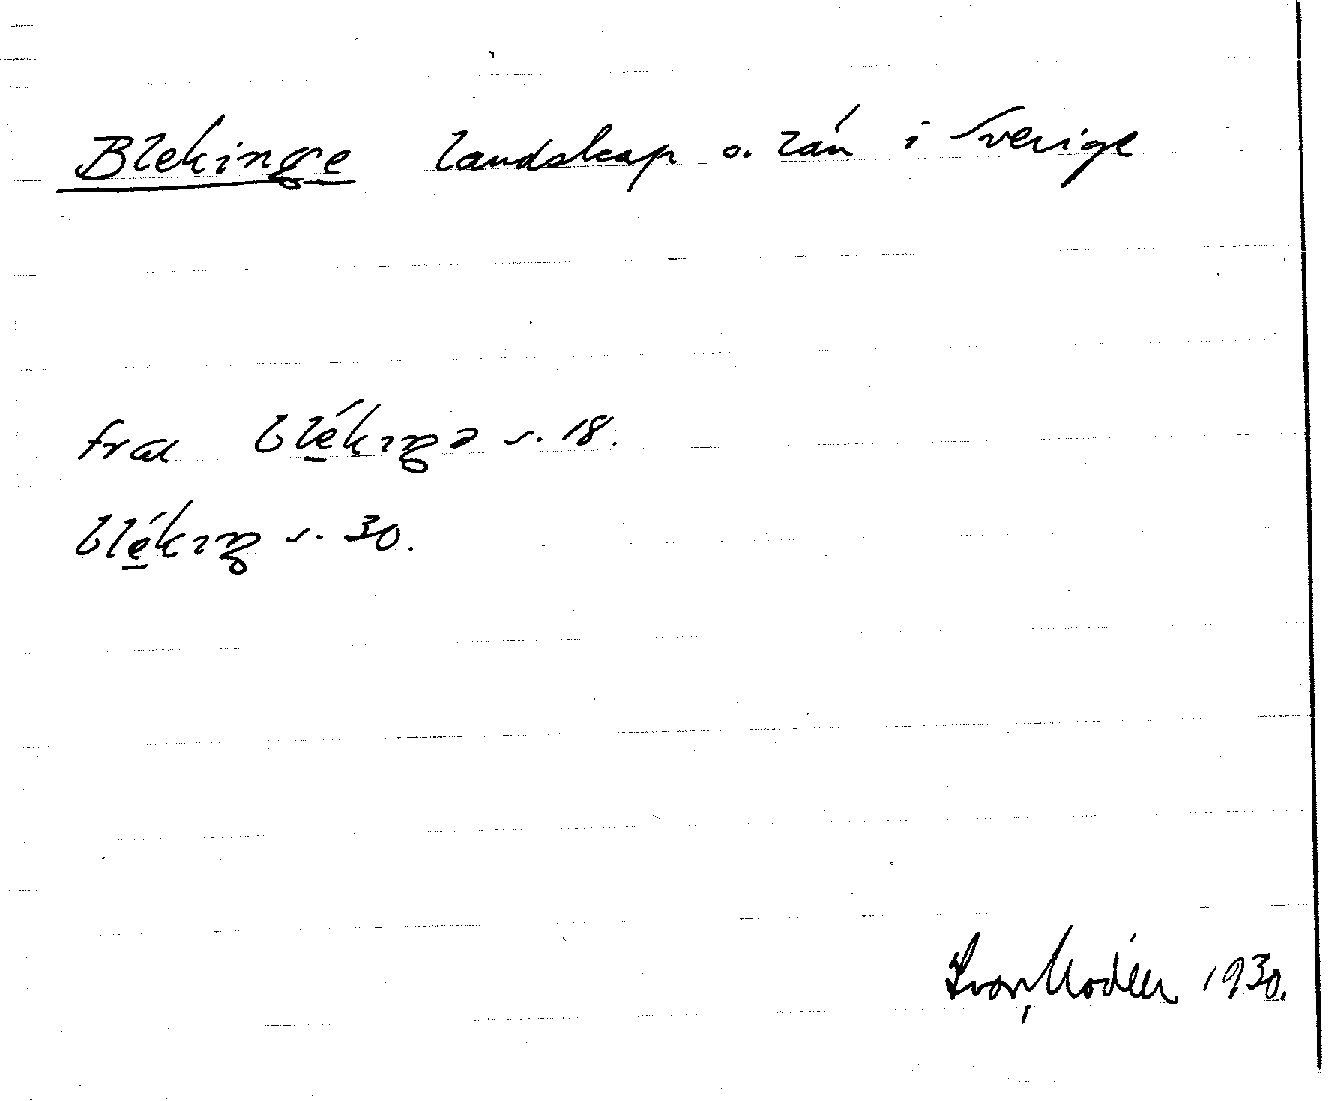 Blekinge landskap o. län i Sverige
fra blékıŋə s. 18.
blékıŋ s. 30.
Ivar Modéer 1930.